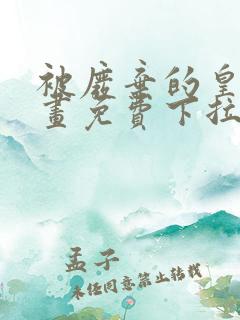 被废弃的皇
畫免費下拉
孟子
未任同意禁止转载